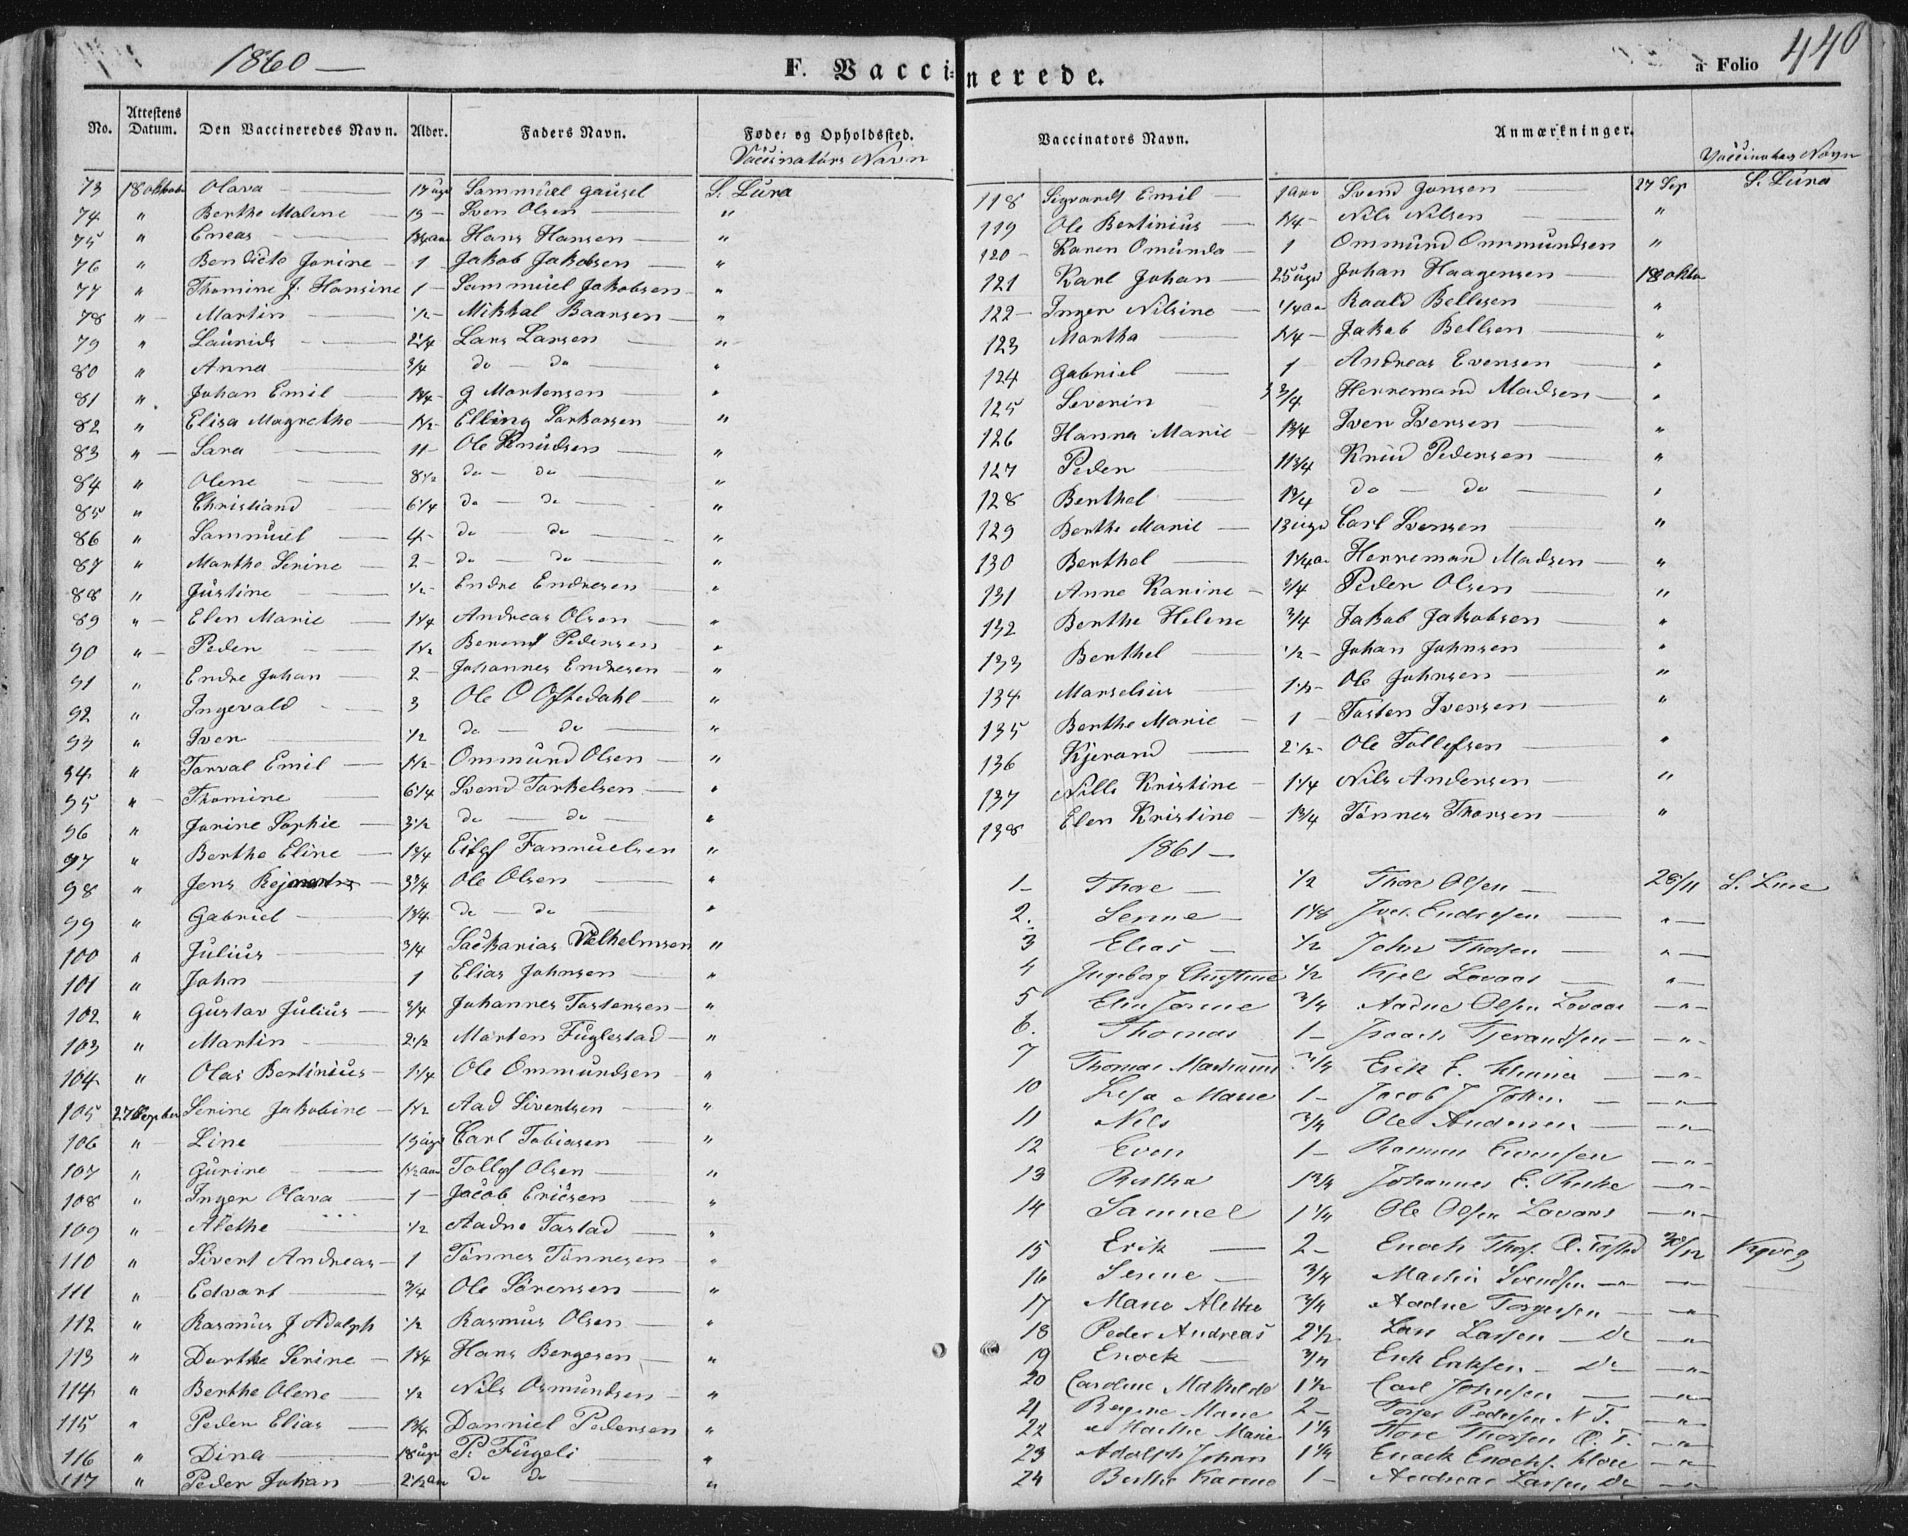 1860 —
F. Vaccinerede.
a Folio 440
No. Attestens Datum. Den Vaccineredes Navn. Alder. Faders Navn. Føde- og Opholdssted. Vaccinators Navn. Anmærkninger.
Vaccinatørs Navn
Vaccinators Navn
73 18 oktob Olava 17 ugr Sammuel Gausel S. Lura
74 " Berthe Malene 13 — Sven Olsen "
75 " Eneas Hans Hansen "
76 " Bendicte Jorine 1 Jakob Jakobsen "
77 " Thomine J. Hansine 1 — Sammuel Jakobsen "
78 " Martin 1/2 — Mikkal Baarsen "
79 " Laurids 2 1/4 Lars Larsen "
80 " Anna 3/4 do — do "
81 " Johan Emil G Mortensen "
82 " Elisa Magrethe 1 1/2 Elling "
83 " Sara 11 — Ole Knudsen "
84 " Olene 8 1/2 do — do "
85 " Christiand 6 1/4 do — do "
86 " Sammuel 4 — do — do "
87 " Marthe Serine 2 — do — do "
88 " Justine 1/2 — Endre Endresen "
89 " Elen Marie 1 1/4 Andreas Olsen "
90 " Peder 1 1/2 Berent Pedersen "
91 " Endre Johan 2 — Johannes Endresen "
92 " Ingevald 3 Ole O Oftedahl "
93 " Iver 1/2 do — do "
94 " Torval Emil 1 1/2 Ommund Olsen "
95 " Thomine 6 1/4 Svend Torkelsen "
96 " Jorine Sophie 3 1/2 do — do "
97 " Berthe Eline 1 3/4 Fannuelsen "
98 " Jens 3 3/4 Ole Olsen "
99 " Gabriel 1 3/4 do — do "
100 " Julius 3/4 Sackarias Vilhelmsen "
101 " John 1 Elias Johnsen "
102 " Gustav Julius 3/4 Johannes Tostensen "
103 " Martin 2 1/2 Morten Fuglestad "
104 " Olas Bertinius 1 1/4 Ole Ommundsen "
105 27 September Serine Jakobine 1 1/2 Aad Sivertsen "
106 " Line 13 ugr Carl Tobiasen "
107 " Gurine 1 1/2 aar Tollef Olsen "
108 " Inger Olava 1 — Jacob Ericsen "
109 " Alethe 1/2 Aadne Tastad "
110 " Sivert Andreas 1 Tønnes Tønnesen "
111 " Edvart 3/4 Ole Sørensen "
112 " Rasmus J Adolph 1/2 Rasmus Olsen "
113 " Dorthe Serine 1 1/4 Hans Bergesen "
114 " Berthe Olene 1/2 Nils Osmundsen "
115 " Peder Elias 1 3/4 Danniel Pedersen "
116 " Dina 18 ugr P. Fugeli "
117 " Peder Johan 2 1/2 aar do do "
118 Sigvardt Emil 1 aar Svend Jonsen 27 Sep S. Lura
119 Ole Bertinius 1 1/4 — Nils Nilsen "
120 Karen Omunda 1 Ommund Ommundsen "
121 Karl Johan 25 ugr Johan Haagensen 18 oktb
122 Inger Nilsine 1 1/4 aar Roald Bellesen "
123 Martha 1 1/4 — Jakob Bellsen "
124 Gabriel 1 Andreas Evensen "
125 Severin 3 3/4 Herremand Madsen "
126 Hanna Marie 1 3/4 Iver Iversen "
127 Peder 11 3/4 Knud Pedersen "
128 Berthel 1 3/4 do — do "
129 Berthe Marie 13 ugr Carl Svensen "
130 Berthel 1 1/4 aar Herremand Madsen "
131 Anne Karine 3/4 Peder Olsen "
132 Berthe Helene 3/4 Jakob Jakobsen "
133 Berthel 1/2 — Johan Johnsen "
134 Marselius 1 1/2 — Ole Johnsen "
135 Berthe Marie 1 — Tosten Iversen "
136 Kjerand 2 1/2 — Ole Tollefsen "
137 Nille Kristine 1 1/4 Nils Andersen "
138 Elen Kristine 1 3/4 Tønnes Thorsen "
1861 —
1 — Thore — 1/2 Thore Olsen — 28/11 S. Lure
2. Serine — 1 1/8 Iver Endresen — "
3 Elias — 1/2 John Thorsen — "
4 Ingeborg Christine 1/2 Kjel Lovaas — "
5 Elen Jorine 3/4 Aadne Olsen Lovaas — "
6. Thomas 1 — Isaach Tjerandsen — "
7 Thomas 3/4 Erik E. — "
10 Marie 1 — Jacob J — "
11 Nils 3/4 Ole Andersen — "
12 Even 1 — Evensen — "
13 Bertha 1 3/4 Johannes E. — "
14 Samuel 1 1/4 Ole Olsen Lovaas — "
15 Erik — 2 — Enoch Thors. 30/12
16 Serine — 3/4 Martin Svendsen — "
17 Mane Alethe 3/4 Aadne Torgersen — "
18 Peder Andreas 2 1/2 Lars Larsen — Do — "
19 Enock — 3/4 Erik Eriksen — Do — "
20 Caroline Mathilde 1 1/2 Carl Johnsen — "
21 Marie 2 — Pedersen N. T. — "
22 Marthe Marie 1 1/4 Tore Thorsen — "
23 Adolph Johan 1 1/4 Enock Enochs. — "
24 Berthe Karine 1 — Andreas Larsen Do — "